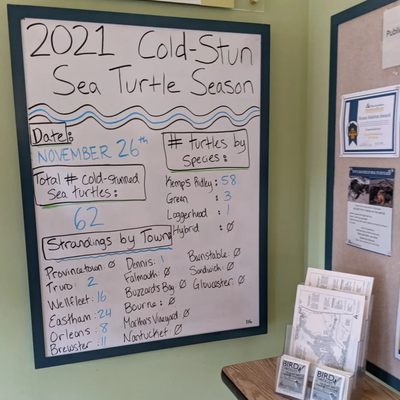 2021 Cold-Stun
Sea Turtle Season
Date:
NOVEMBER 26th
Total # cold-stunned
Sea turtles:
62
# turtles by
Species:
Kemp's Ridley: 58
Green : 3
Loggerhead : 1
Hybrid : Ø
Strandings by Town
Provincetown: Ø
Truro : 2
Wellfleet: 16
Eastham: 24
Orleans : 8
Brewster : 11
Dennis: 1
Falmouth: Ø
Buzzards Bay Ø
Bourne : Ø
Martha's Vineyard: Ø
Nantucket: Ø
Barnstable: Ø
Sandwich: Ø
Gloucester: Ø
Public
BIRD
BIRD